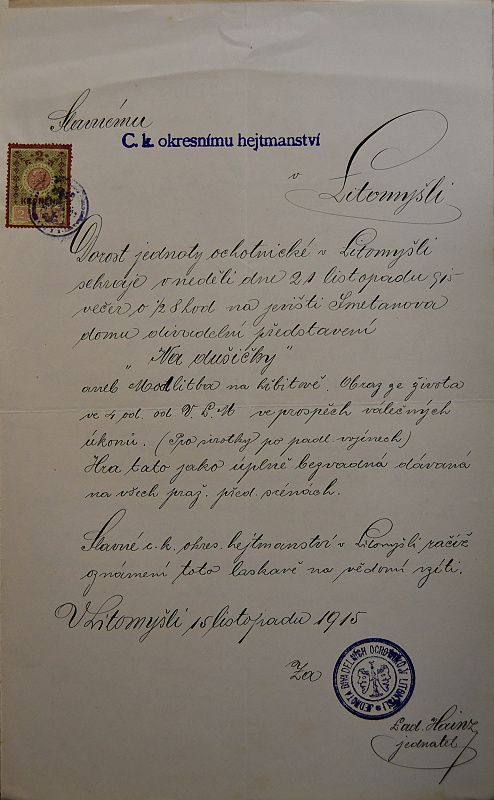 Slavnému
C. k. okresnímu hejtmanství
v
Litomyšli
2
KRONEN
Dorost jednoty ochotnické v Litomyšli
sehraje v neděli dne 21 listopadu 915
večer o 1/2 8 hod na jevišti Smetanova
domu divadelní představení
"Na dušičky"
aneb Modlitba na hřbitově. Obraz ze života
ve 4 od. od V. L. M ve prospěch válečných
úkonů. (Pro sirotky po padl. vojínech)
Hra tato jako úplně bezvadná dávaná
na všech praž. před. scénách.
Slavné c. k. okres. hejtmanství v Litomyšli račiž
oznámení toto laskavě na vědomí vzíti.
V Litomyšli 15 listopadu 1915
Za
JEDNOTA DIVADELNÍCH OCHOTNÍKŮ V LITOMYŠLI
Lad. Hainz
jednatel